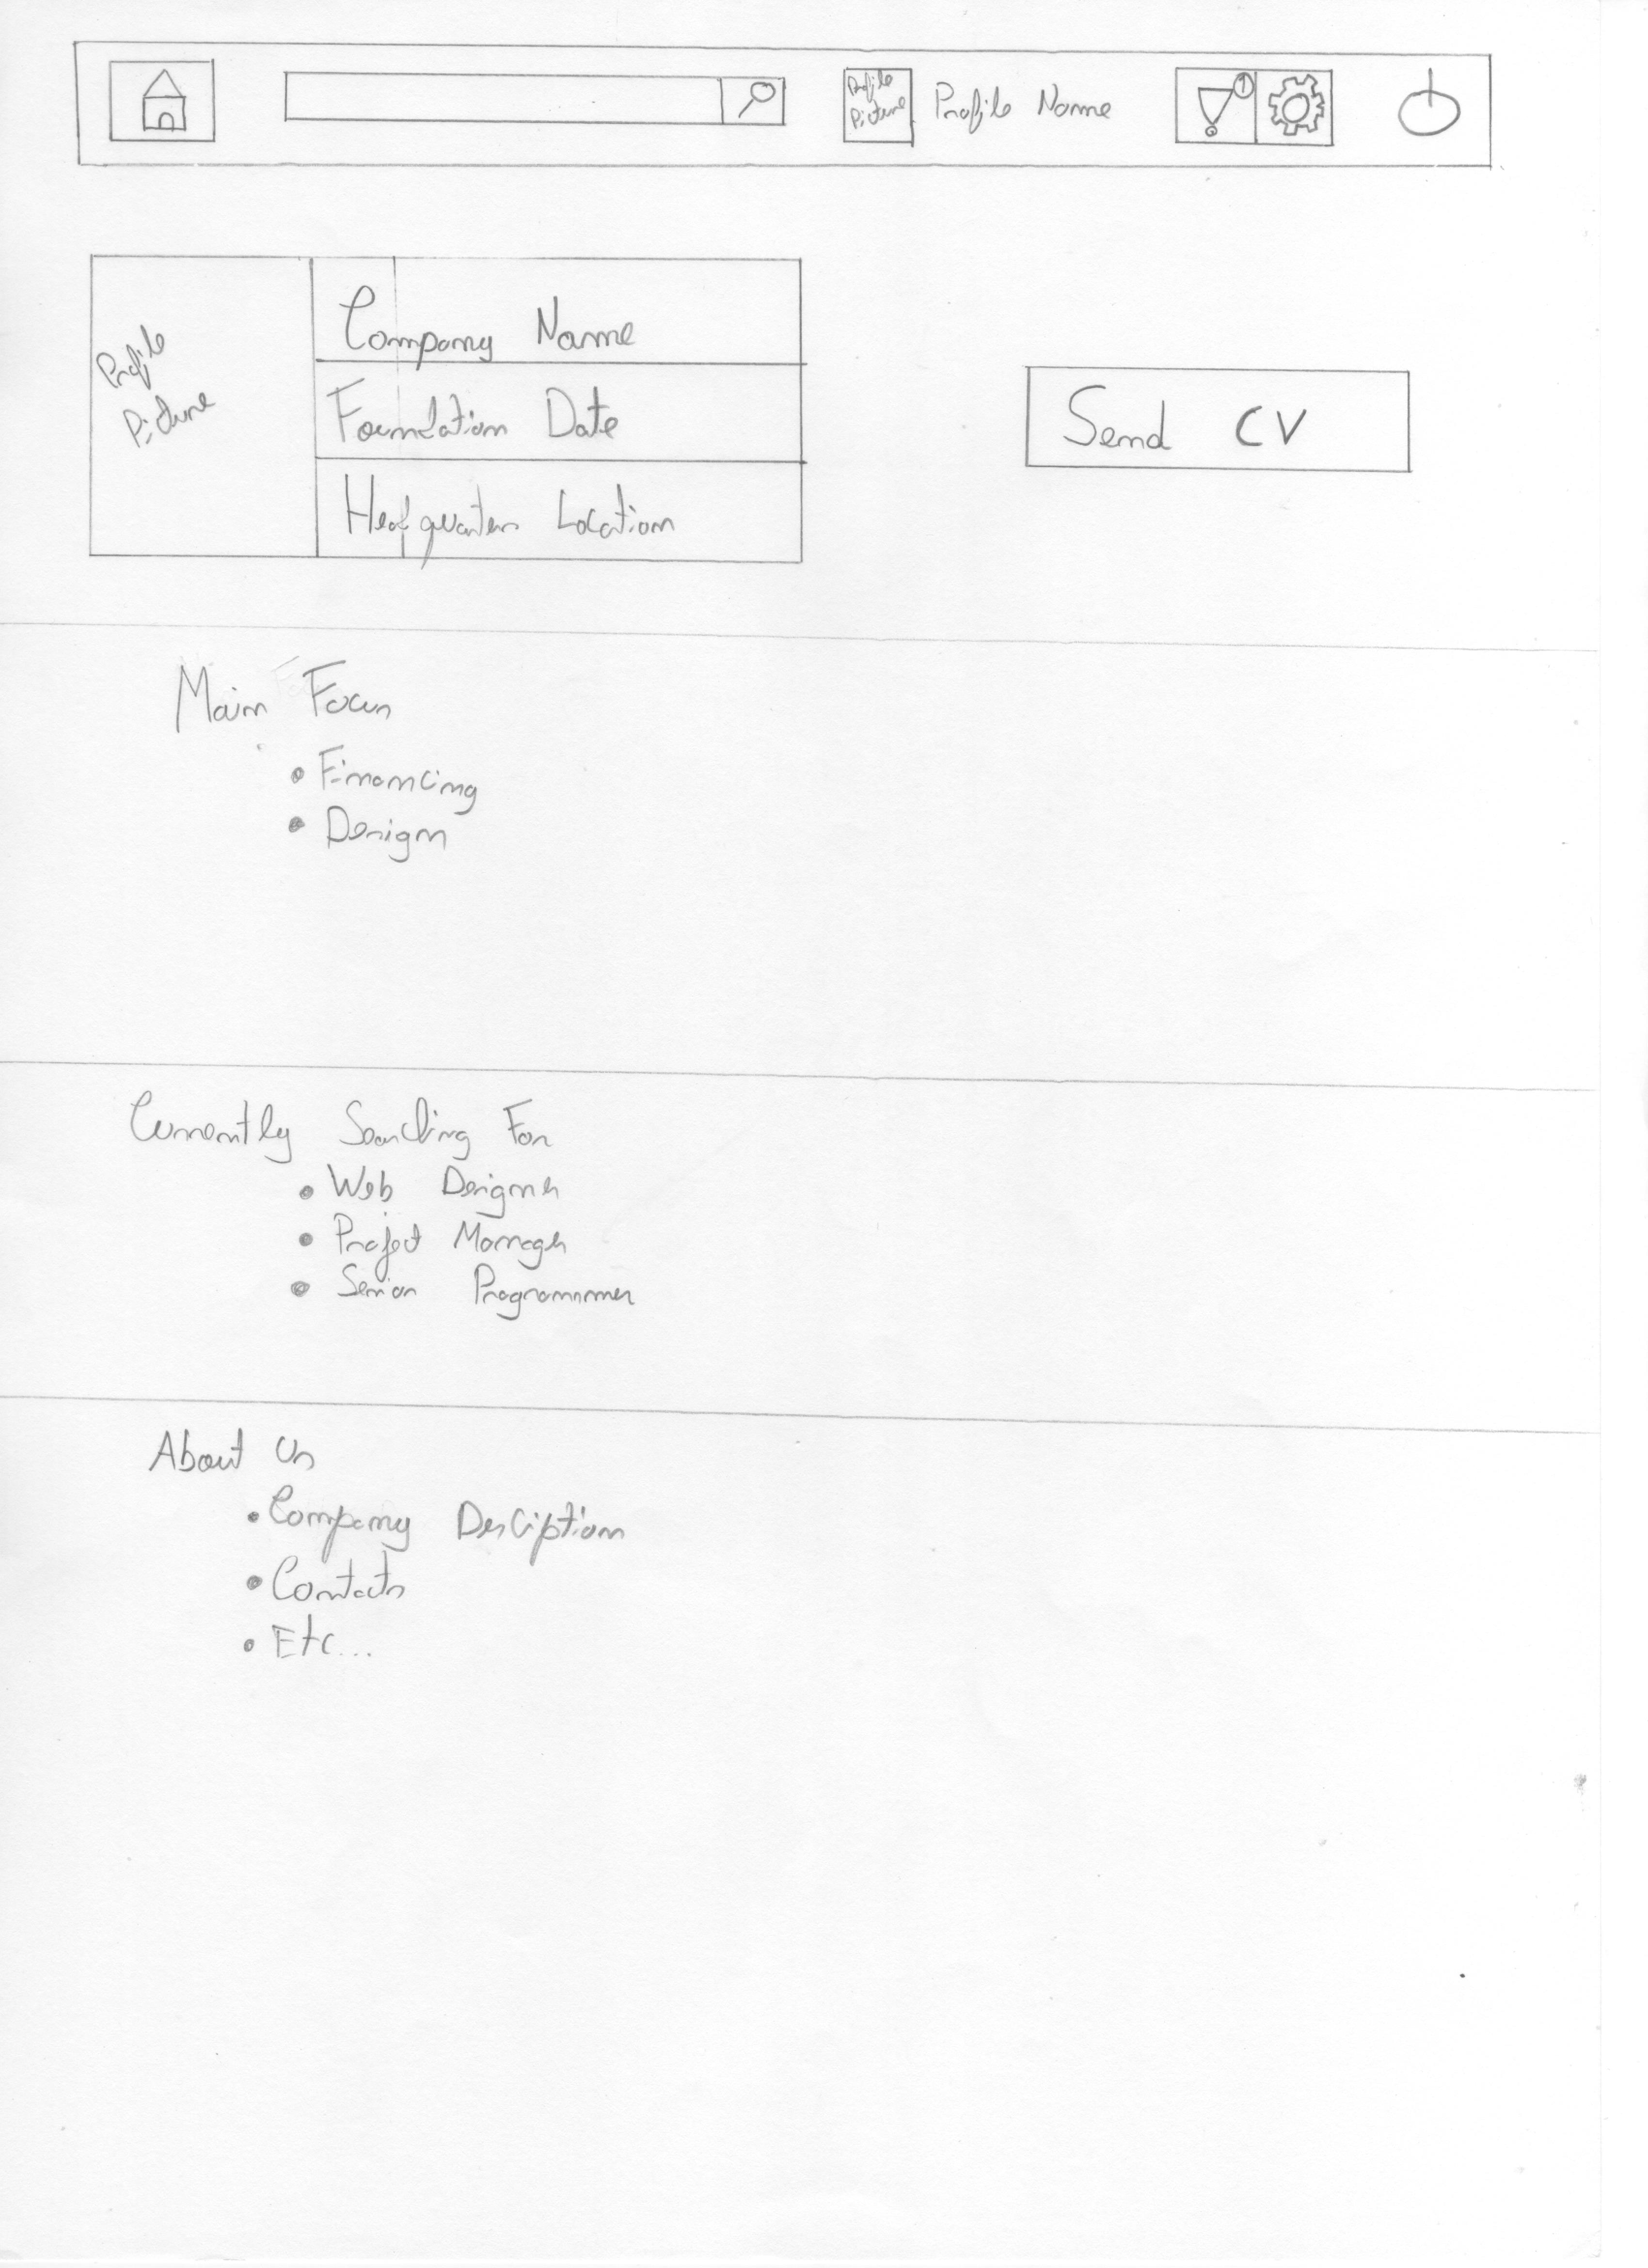 Profile
Picture
Profile Name
1
Profile
Picture
Company Name
Foundation Date
Headquarters Location
Send CV
Main Focus
• Financing
• Design
Currently Searching For
• Web Designer
• Project Manager
• Senior Programmer
About Us
• Company Desciption
• Contacts
• Etc...